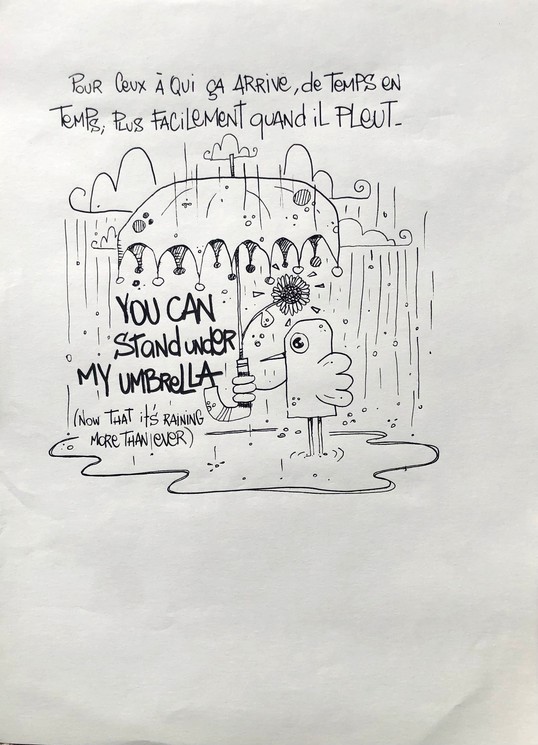 POUR CEUX À QUI ÇA ARRIVE, de TEMPS EN
TEMPS, PLUS FACILEMENT QUAND IL PLEUT_
YOU CAN
Stand under
MY UMBRELLA
(NOW THAT it's RAINING
MORE THAN EVER)